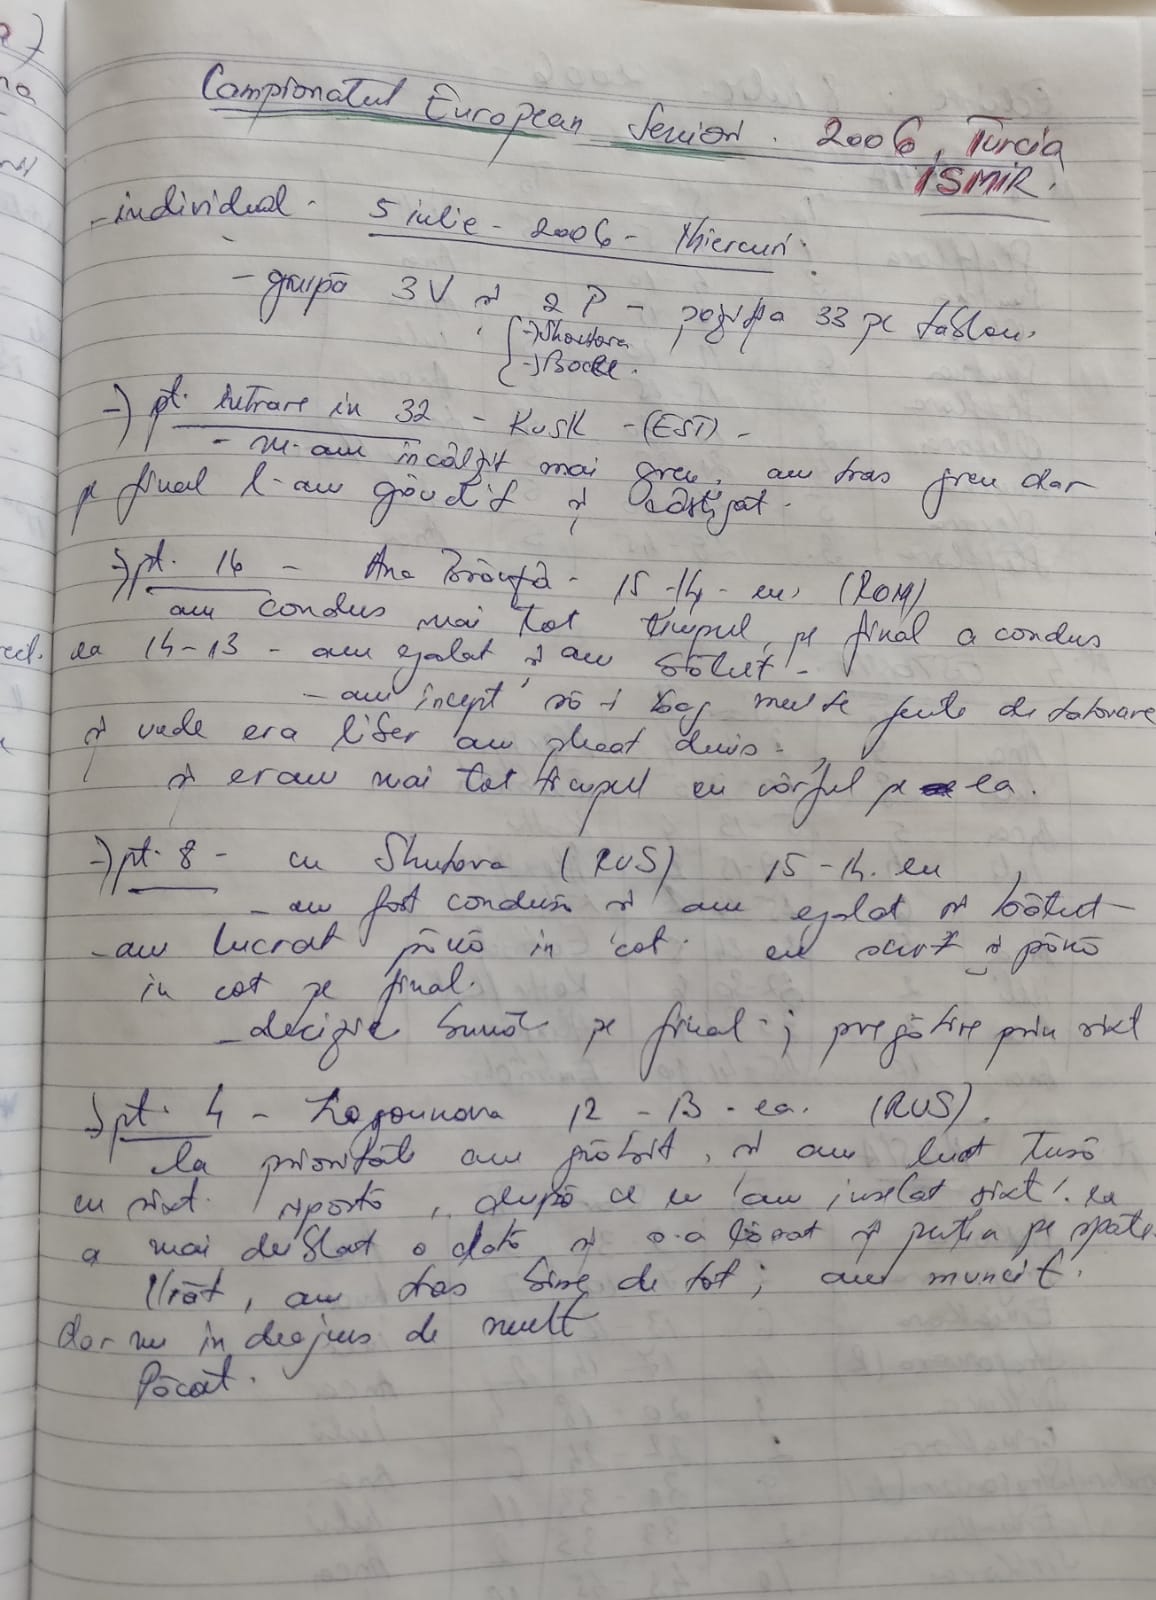 Campionatul European Seniori. 2006, Turcia
ISMIR.
- individual. 5 iulie - 2006 - Miercuri.
- grupă 3V și 2P - poziția 33 pe tablou.
→ Shoutova
→ Bocel.
→ pt. intrare in 32 - KUSK - (EST) -
- m-am încălzit mai greu, am tras greu dar
pe final l-am gândit și câștigat.
→ pt. 16 - Ana Brânză - 15-14 - eu, (ROM)
am condus mai tot timpul, pe final a condus
ea 14-13 - am egalat și am bătut -
- am încept să-i bag multe fente de
și unde era liber am plecat
și eram mai tot timpul cu vârful pe ea.
→ pt. 8 - cu Shutova (RUS) 15-14. eu
- am fost condusă și am egalat și bătut
- am lucrat până in cot. cu sixt și până
in cot pe final.
- decizie bună pe final ; pregătire prin sixt
→ pt. 4 - Logounova 12 - 13 - ea. (RUS).
la prioritate am grăbit, și am luat tusă
cu sixt ripostă, după ce eu am sixt. ea
a mai o dată și pe spate.
Urât, am tras bine de tot ; am muncit.
dar nu in deajuns de mult
Păcat.